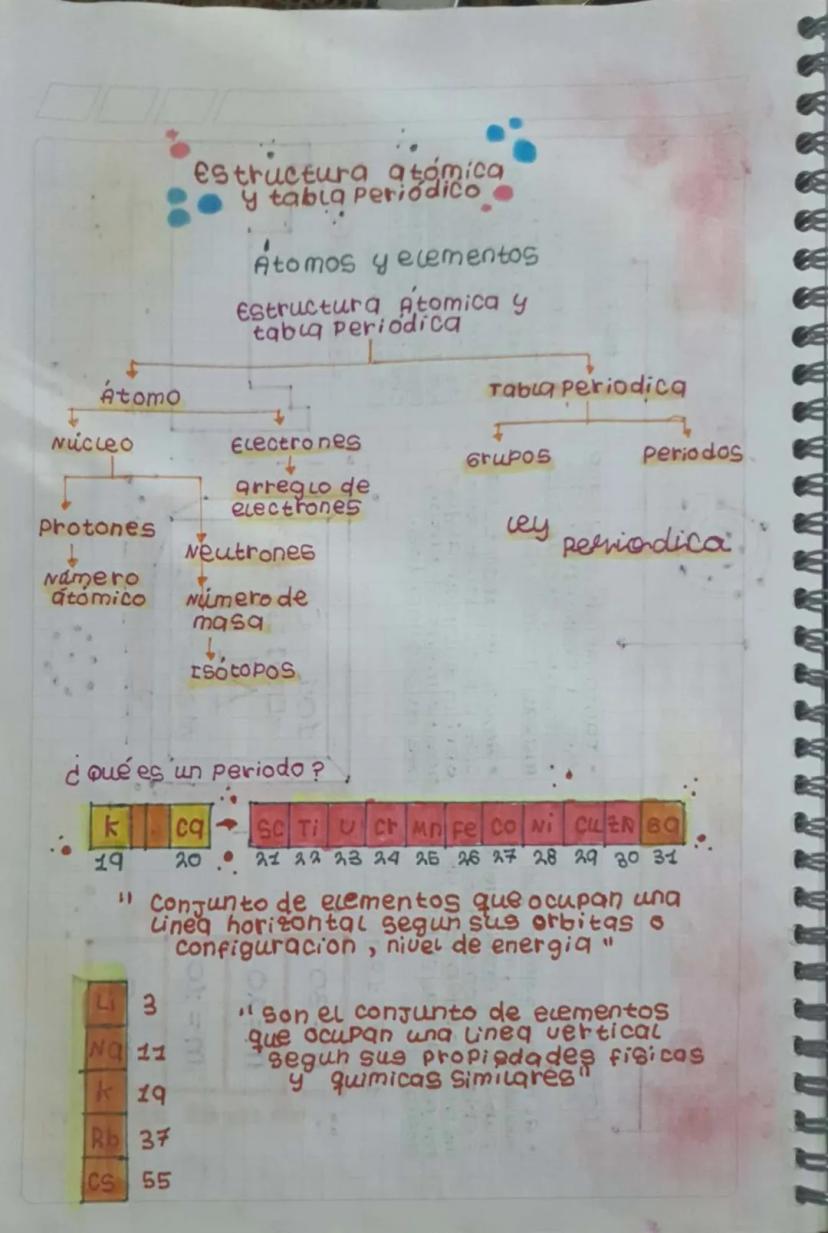 Estructura atómica
y tabla periódico
Átomos y elementos
Estructura Átomica y
tabla periódica
Átomo
Tabla periodica
Núcleo
Electrones
Grupos
Periodos
arreglo de
electrones
Protones
Neutrones
Ley
periodica
Número
atómico
Número de
masa
Isótopos
¿Qué es un periodo?
K Ca Sc Ti U Cr Mn Fe Co Ni Cu ZN Ga
19 20 21 22 23 24 25 26 27 28 29 30 31
" Conjunto de elementos que ocupan una
linea horizontal segun sus orbitas o
configuracion, nivel de energia "
Li 3
Na 11
K 19
Rb 37
Cs 55
" Son el conjunto de elementos
que ocupan una linea vertical
segun sus propiedades fisicas
y quimicas similares"